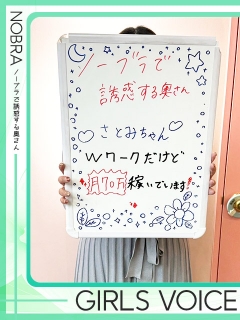 NOBRA ノーブラで誘惑する奥さん
ノーブラで
誘惑する奥さん
さとみちゃん
Wワークだけど
月70万稼いでいます!
GIRLS VOICE